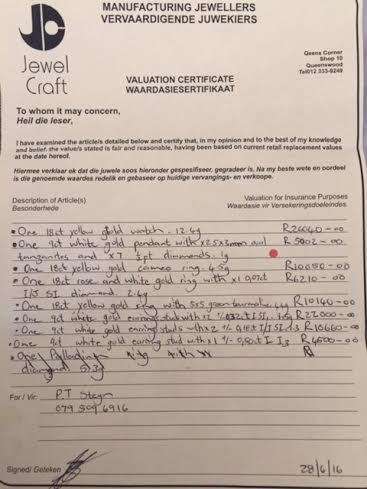 MANUFACTURING JEWELLERS
VERVAARDIGENDE JUWEKIERS
Jewel
Craft
Qeens Corner
Shop 10
Queenswood
Tel012 333-9249
VALUATION CERTIFICATE
WAARDASIESERTIFIKAAT
To whom it may concern,
Heil die leser,
I have examined the article's detailed below and certify that, in my opinion and to the best of my knowledge
and belief. the value's stated is fair and reasonable, having been based on current retail replacement values
at the date hereof.
Hiermee verklaar ek dat die juwele soos hieronder gespesifiseer, gegradeer is. Na my beste wete en oordeel
is die genoemde waardes redelik en gebaseer op huidige vervangings- en verkoope.
Description of Article(s)
Besonderhede
Valuation for Insurance Purposes
Waardasie vir Versekeringsdoeleindes
One 18ct yellow gold watch - 12.6g R26040-00
One 9ct white gold pendant with x25x3mm oval R5002-00
tanzanites and x7 3pt diamonds. 1g
One 18ct yellow gold cameo ring 6.5g R10050-00
One 18ct rose and white gold ring with x1 R6210-00
I/J SI. diamond 2.6g
One 18ct yellow gold ring with 5x5 green tourmaline R10140-00
One 9ct white gold earring stud with x2 R22000-00
One 9ct white gold earring studs with x2 R10660-00
One 9ct white gold earring stud with x1 I I3 R4500-00
One Palladium ring with
diamond
For / Vir: P.T Steyn
079 509 6916
Signed/ Geteken
28/6/16